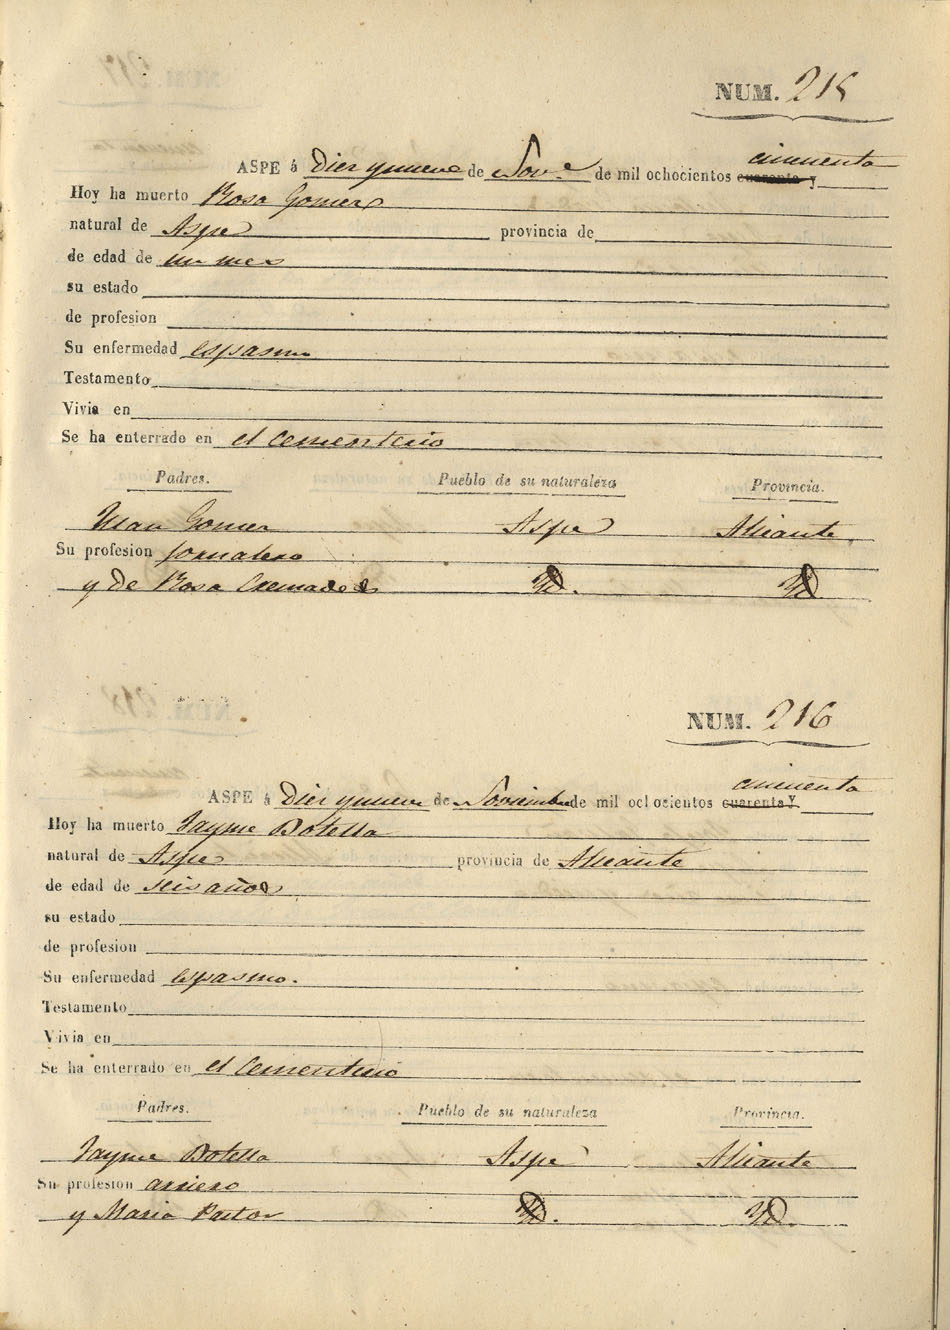 NUM. 215
cincuenta
ASPE á Diez y nueve de Nov.e de mil ochocientos cuarenta y
Hoy ha muerto Rosa Gomez
natural de Aspe provincia de
de edad de un mes
su estado
de profesion
Su enfermedad espasmo
Testamento
Vivia en
Se ha enterrado en el Cementerio
Padres. Pueblo de su naturaleza Provincia.
Juan Gomez Aspe Alicante
Su profesion jornalero
y de Rosa Cremades Yd. Yd
NUM. 216
cincuenta
ASPE á Diez y nueve de Noviembre de mil ochocientos cuarenta y
Hoy ha muerto Jayme Botella
natural de Aspe provincia de Alicante
de edad de seis años
su estado
de profesion
Su enfermedad espasmo.
Testamento
Vivia en
Se ha enterrado en el Cementerio
Padres. Pueblo de su naturaleza Provincia.
Jayme Botella Aspe Alicante
Su profesion arriero
y Maria Pastor Yd. Yd.